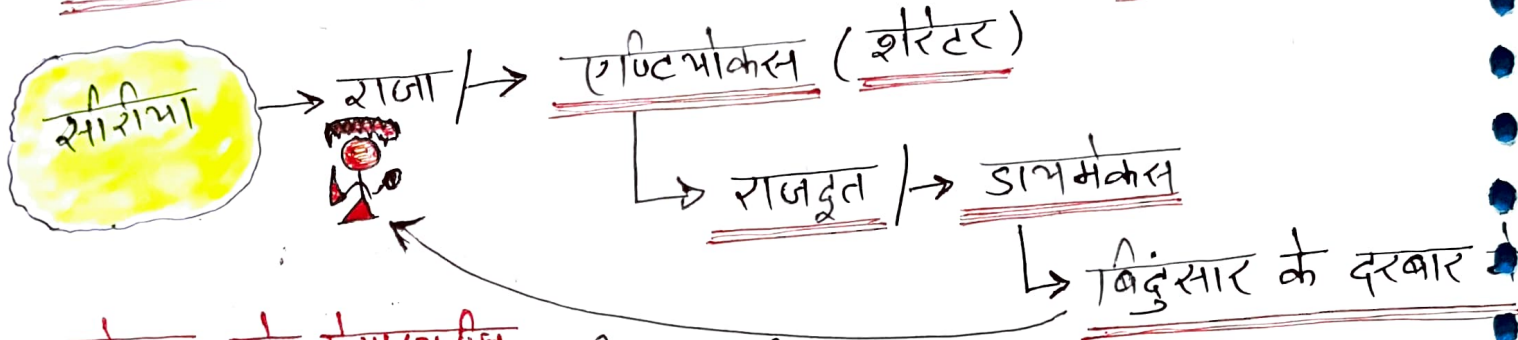 सीरीया → राजा → एण्टियोकस (शेरेटर)
राजदूत → डायमेकस
बिंदुसार के दरबार में